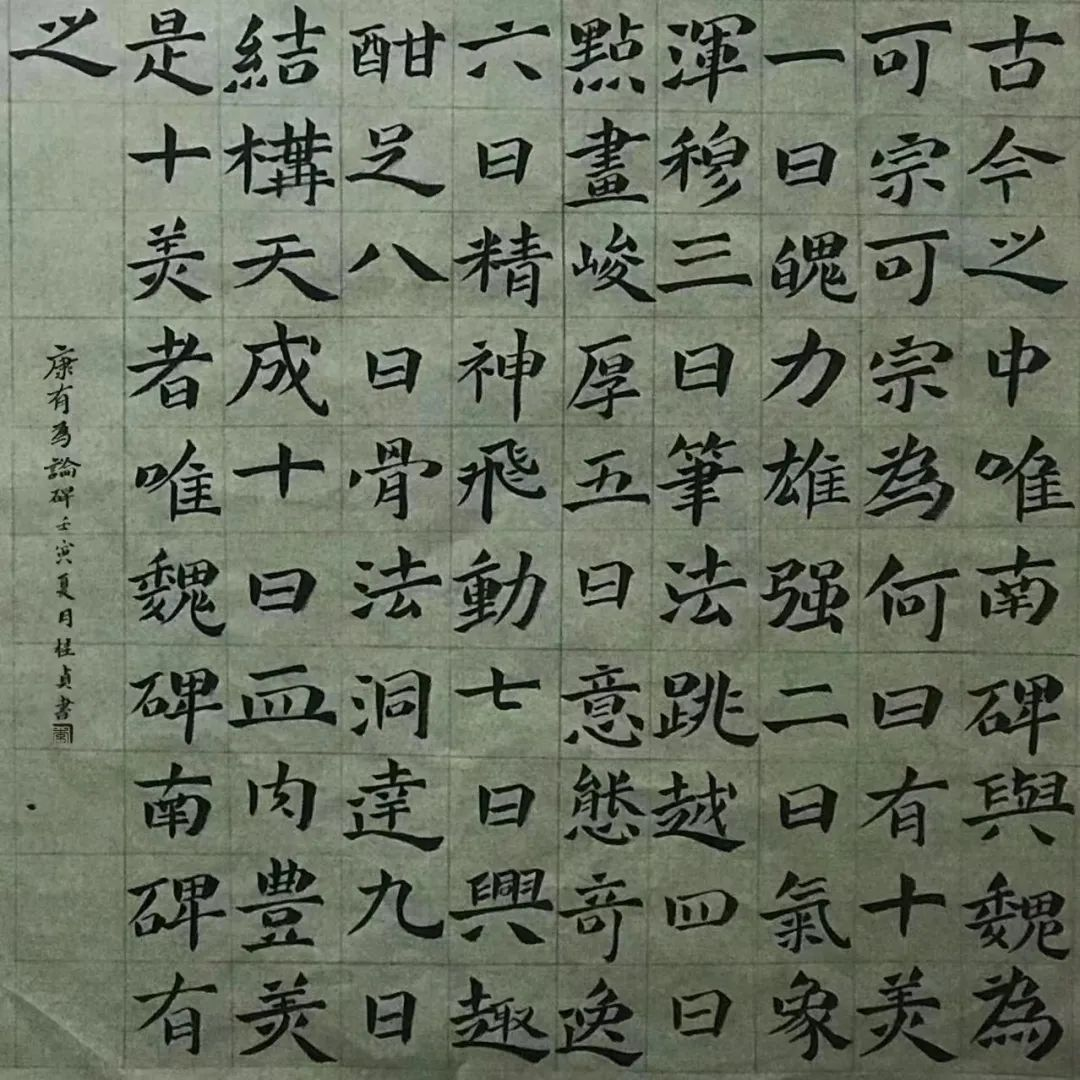 古今之中唯南碑與魏為
可宗可宗為何曰有十美
一曰魄力雄强二曰氣象
渾穆三曰筆法跳越四曰
點畫峻厚五曰意態奇逸
六曰精神飛動七曰興趣
酣足八曰骨法洞達九曰
結構天成十曰血肉豊美
是十美者唯魏碑南碑有
之
康有為論碑壬寅夏月桂貞書